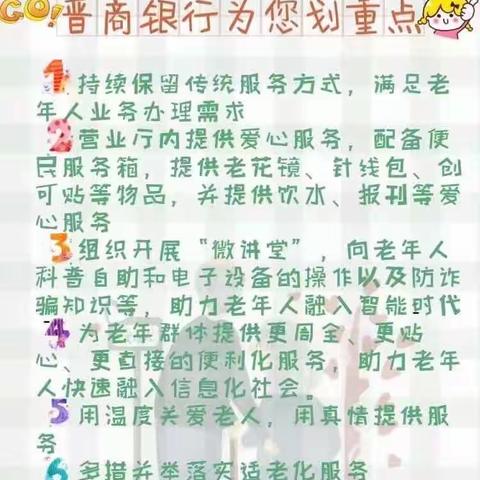 GO!晋商银行为您划重点
1 持续保留传统服务方式，满足老
年人业务办理需求
2 营业厅内提供爱心服务，配备便
民服务箱，提供老花镜、针线包、创
可贴等物品，并提供饮水、报刊等爱
心服务
3 组织开展“微讲堂”，向老年人
科普自助和电子设备的操作以及防诈
骗知识等，助力老年人融入智能时代
4 为老年群体提供更周全、更贴
心、更直接的便利化服务，助力老年
人快速融入信息化社会。
5 用温度关爱老人，用真情提供服
务
6 多措并举落实适老化服务